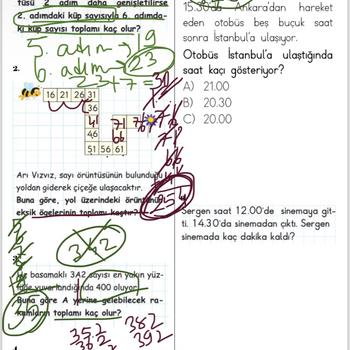 tüsü 2 adım daha genişletilirse
2. adımdaki küp sayısıyla 6. adımda-
ki küp sayısı toplamı kaç olur?
5. adım → 19
6. adım → 23
2.
16 21 26 31
36
41 71
46 66
51 56 61
Arı Vızvız, sayı örüntüsünün bulunduğu
yoldan giderek çiçeğe ulaşacaktır.
Buna göre, yol üzerindeki örüntünün
eksik ögelerinin toplamı kaçtır?
254
342
basamaklı 3A2 sayısı en yakın yüz-
yuvarlandığında 400 oluyor.
Buna göre A yerine gelebilecek ra-
kamların toplamı kaç olur?
352 382
392
15.30'da Ankara'dan hareket
eden otobüs beş buçuk saat
sonra İstanbul'a ulaşıyor.
Otobüs İstanbul'a ulaştığında
saat kaçı gösteriyor?
A) 21.00
B) 20.30
C) 20.00
Sergen saat 12.00'de sinemaya git-
ti. 14.30'da sinemadan çıktı. Sergen
sinemada kaç dakika kaldı?